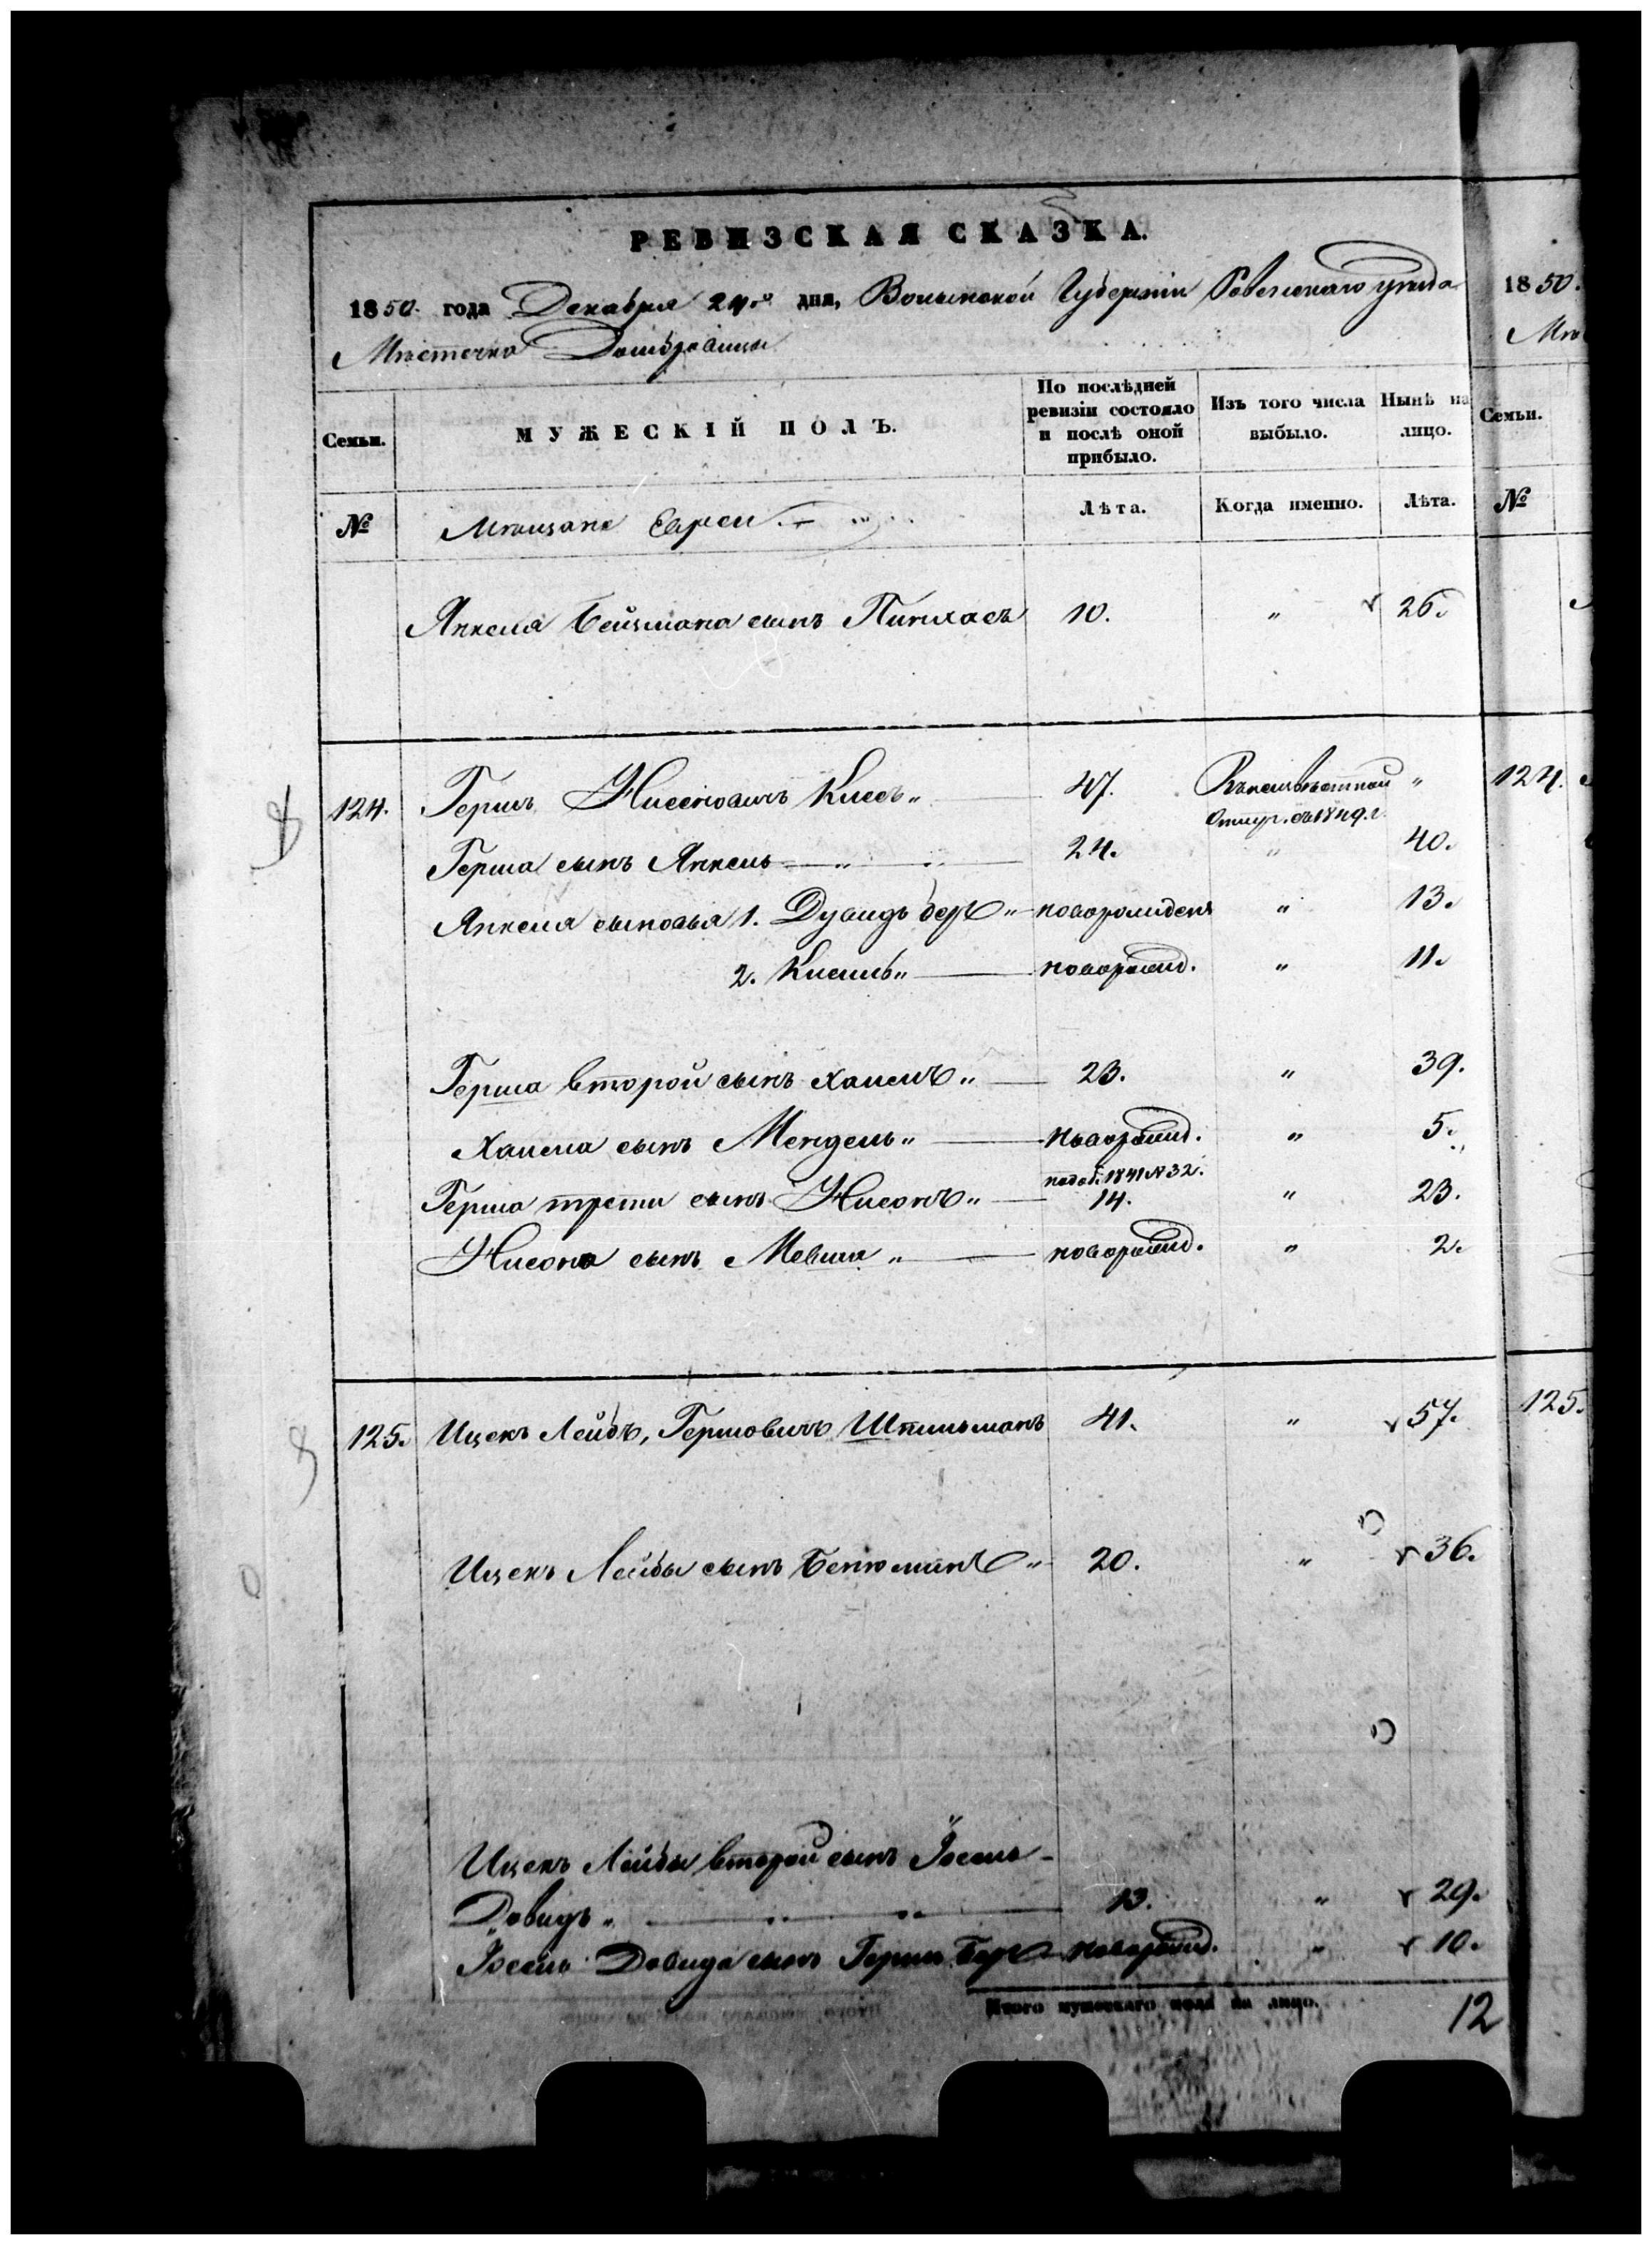 РЕВИЗСКАЯ СКАЗКА.
1850. года Декабря 24го дня, Волынской Губерніи Ровенскаго уѣзда
Мѣстечка Домбровицы
1850.
Семьи.
МУЖЕСКІЙ ПОЛЪ.
По послѣдней ревизіи состояло и послѣ оной прибыло.
Изъ того числа выбыло.
Нынѣ на лицо.
Семьи.
№
Мѣщане Евреи
Лѣта.
Когда именно.
Лѣта.
№
Янкеля Бейцмана сынъ Пинхасъ 10. " 26.
124. Гершъ Нисоновичъ Кисъ " 47. "
Отлуч. съ 1849 г.
124.
Герша сынъ Янкель " 24. " 40.
Янкеля сыновья 1. Дувидъ беръ " новорожденъ " 13.
2. Кисиль " новорожд. " 11.
Герша второй сынъ Хаимъ " 23. " 39.
Хаима сынъ Мендель " новорожд. " 5.
1841 № 32.
Герша трети сынъ Нисонъ " 14. " 23.
Нисона сынъ Мевша " новорожд. " 2.
125. Ицекъ Лейбъ, Гершовичъ Шпильманъ 41. " 57.
125.
Ицекъ Лейбы сынъ Бенюминъ " 20. " 36.
Ицекъ Лейбы второй сынъ Іосель-
Довидъ " 13. " 29.
Іосель Довида сынъ Гершъ Беръ новорожд. " 10.
Итого мужескаго пола на лицо. 12